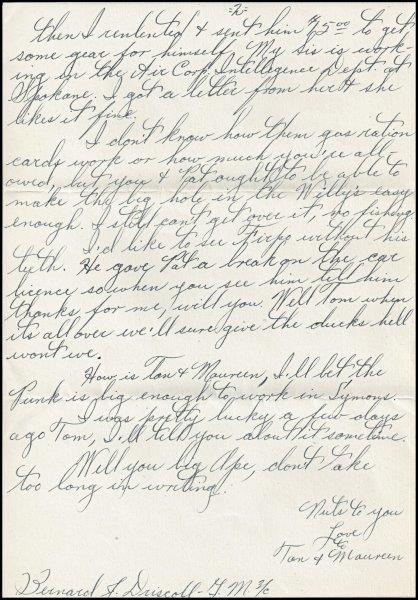 -2-
then I relented & sent him $75.00 to get
some gear for himself. My sis is work-
ing in the Air Corp. Intelligence Dept. at
Spokane. I got a letter from her & she
likes it fine.
I don't know how them gas ration
cards work or how much you're all-
owed, but you & Pat ought to be able to
make the big hole in the Willy's easy
enough. I still can't get over it, no fishing.
I'd like to see Firpo without his
teeth. He gave Pat a break on the car
licence so when you see him tell him
thanks for me, will you. Well Tom when
its all over we'll sure give the ducks hell
wont we.
How is Ton & Maureen, I'll bet the
Punk is big enough to work in Symons.
I was pretty lucky a few days
ago Tom, I'll tell you about it sometime.
Well you big Ape, don't take
too long in writing.
Nuts to you
Love
to
Ton & Maureen
Bernard S. Driscoll - F.M. 3/c